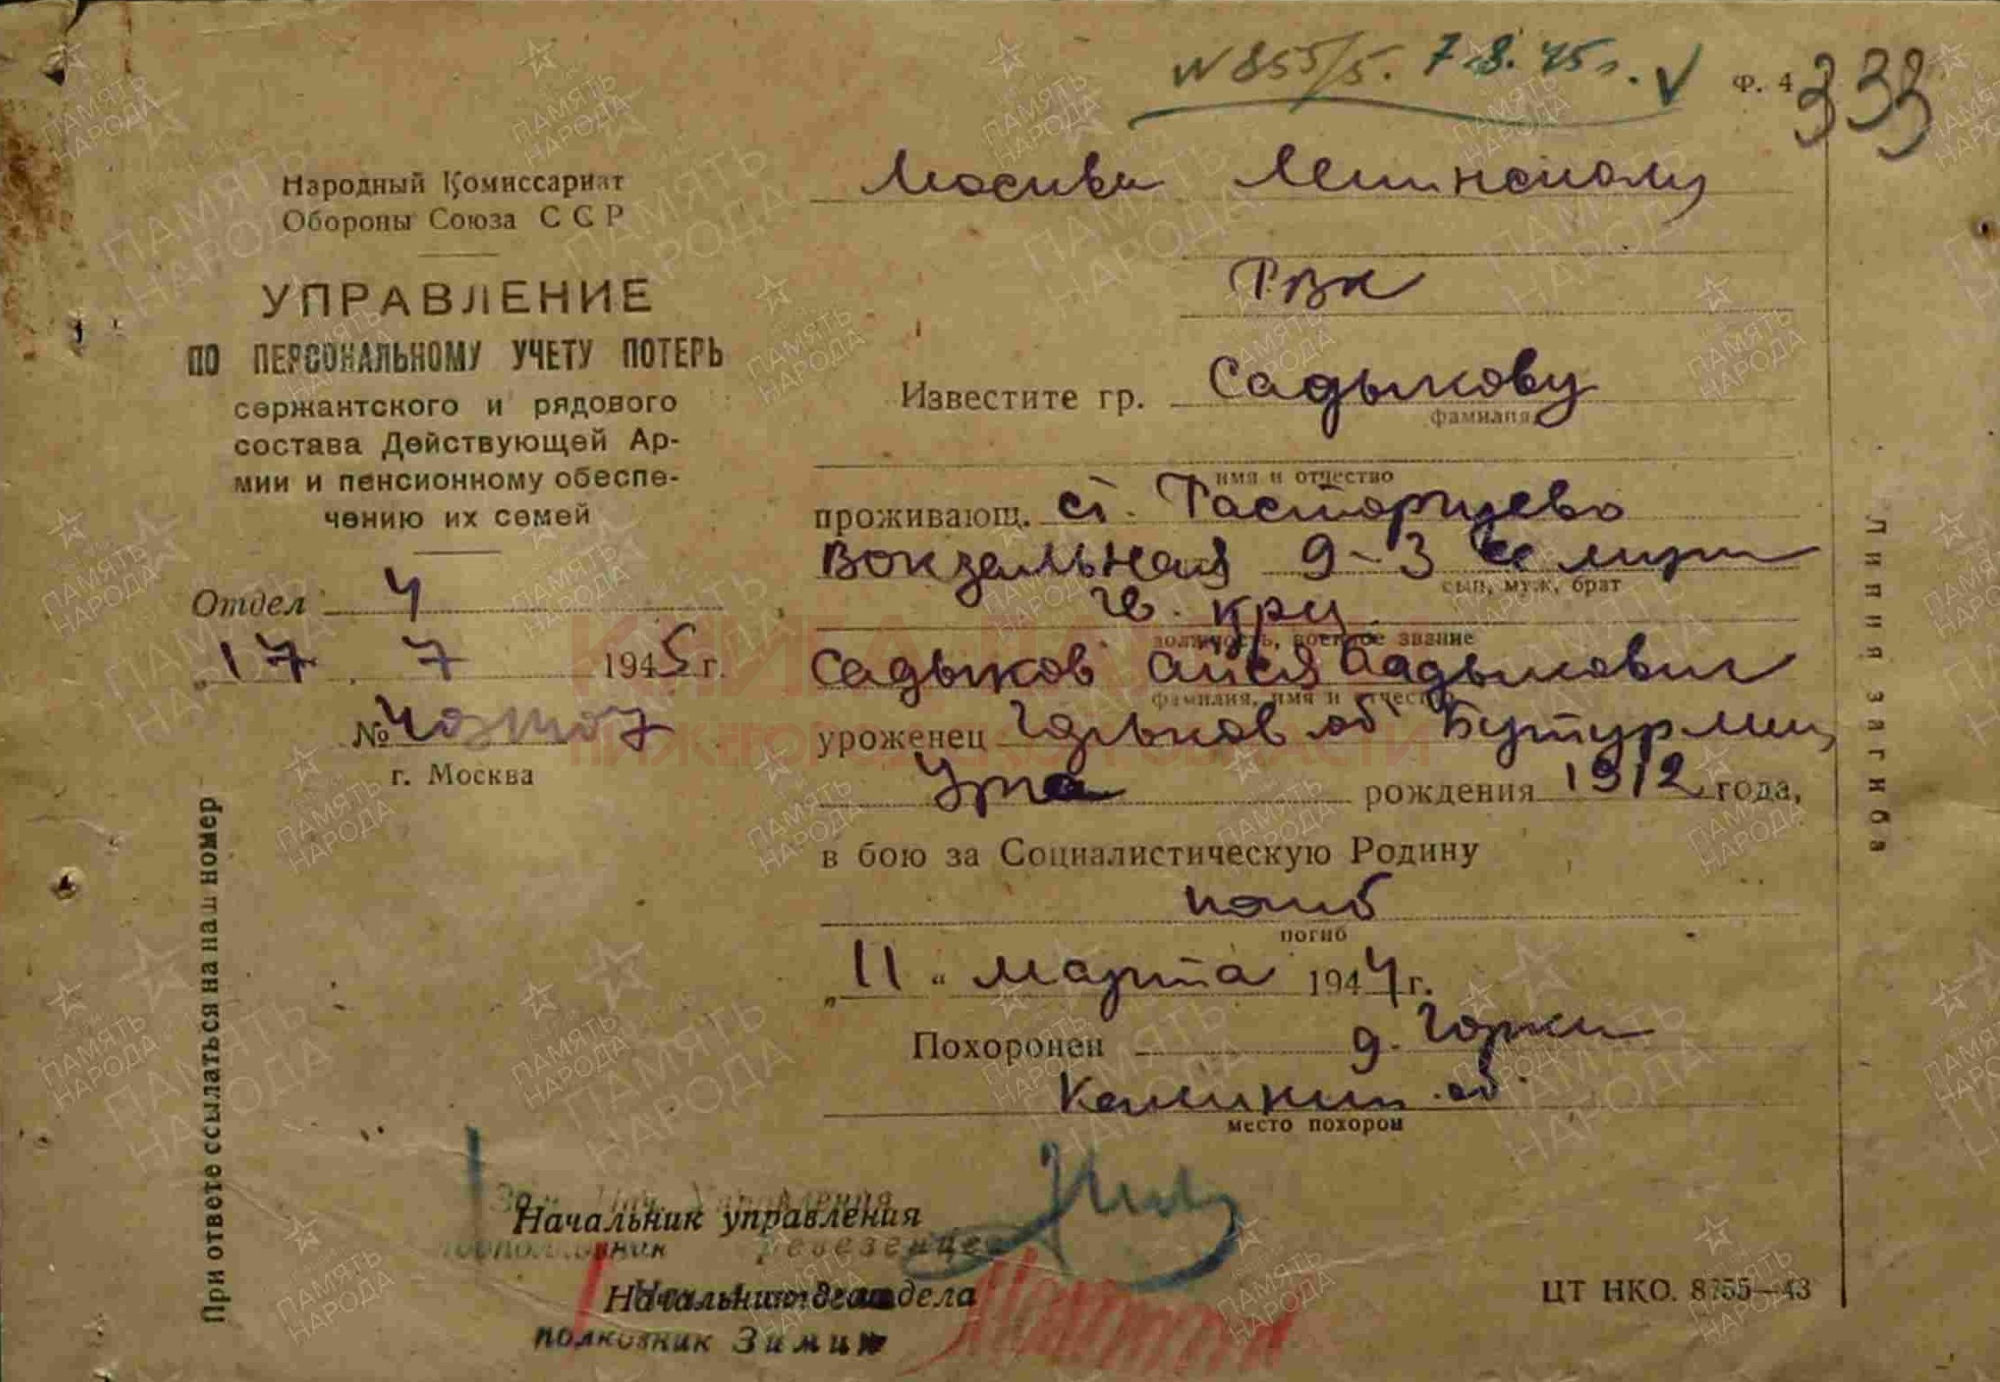 N 855/5. 7.8.45г. V
Ф. 4
333
Народный Комиссариат
Обороны Союза ССР
УПРАВЛЕНИЕ
ПО ПЕРСОНАЛЬНОМУ УЧЕТУ ПОТЕРЬ
сержантского и рядового
состава Действующей Ар-
мии и пенсионному обеспе-
чению их семей
Отдел 4
„17 7 1945 г.
№
г. Москва
При ответе ссылаться на наш номер
Москва Ленинскому
РВК
Известите гр. Садыкову
фамилия
имя и отчество
проживающ. ст. Расторгуево
Вокзальная 9-3
сын, муж, брат
гв. кр-ц
должность, военное звание
Садыков Садыкович
фамилия, имя и отчество
уроженец Горьков об Бутурлин
Урга рождения 1912 года,
в бою за Социалистическую Родину
погиб
погиб
„11“ марта 1944 г.
Похоронен д. Горки
Калинин. об.
место похорон
Начальник управления
Начальник отдела
полковник Зимин
ЦТ НКО. 8755—43
Линия загиба
КНИГА ПАМЯТИ
НИЖЕГОРОДСКОЙ ОБЛАСТИ
ПАМЯТЬ
НАРОДА